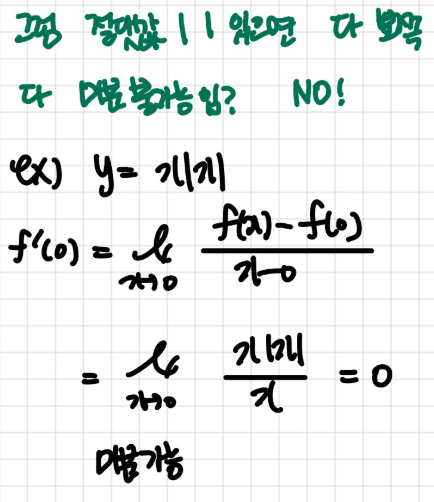 그럼 절댓값 | | 있으면 다 뾰족
다 미분 불가능임? NO!
ex) y = x|x|
f'(0) = lim x→0 (f(x) - f(0)) / (x - 0)
= lim x→0 x|x| / x = 0
미분가능